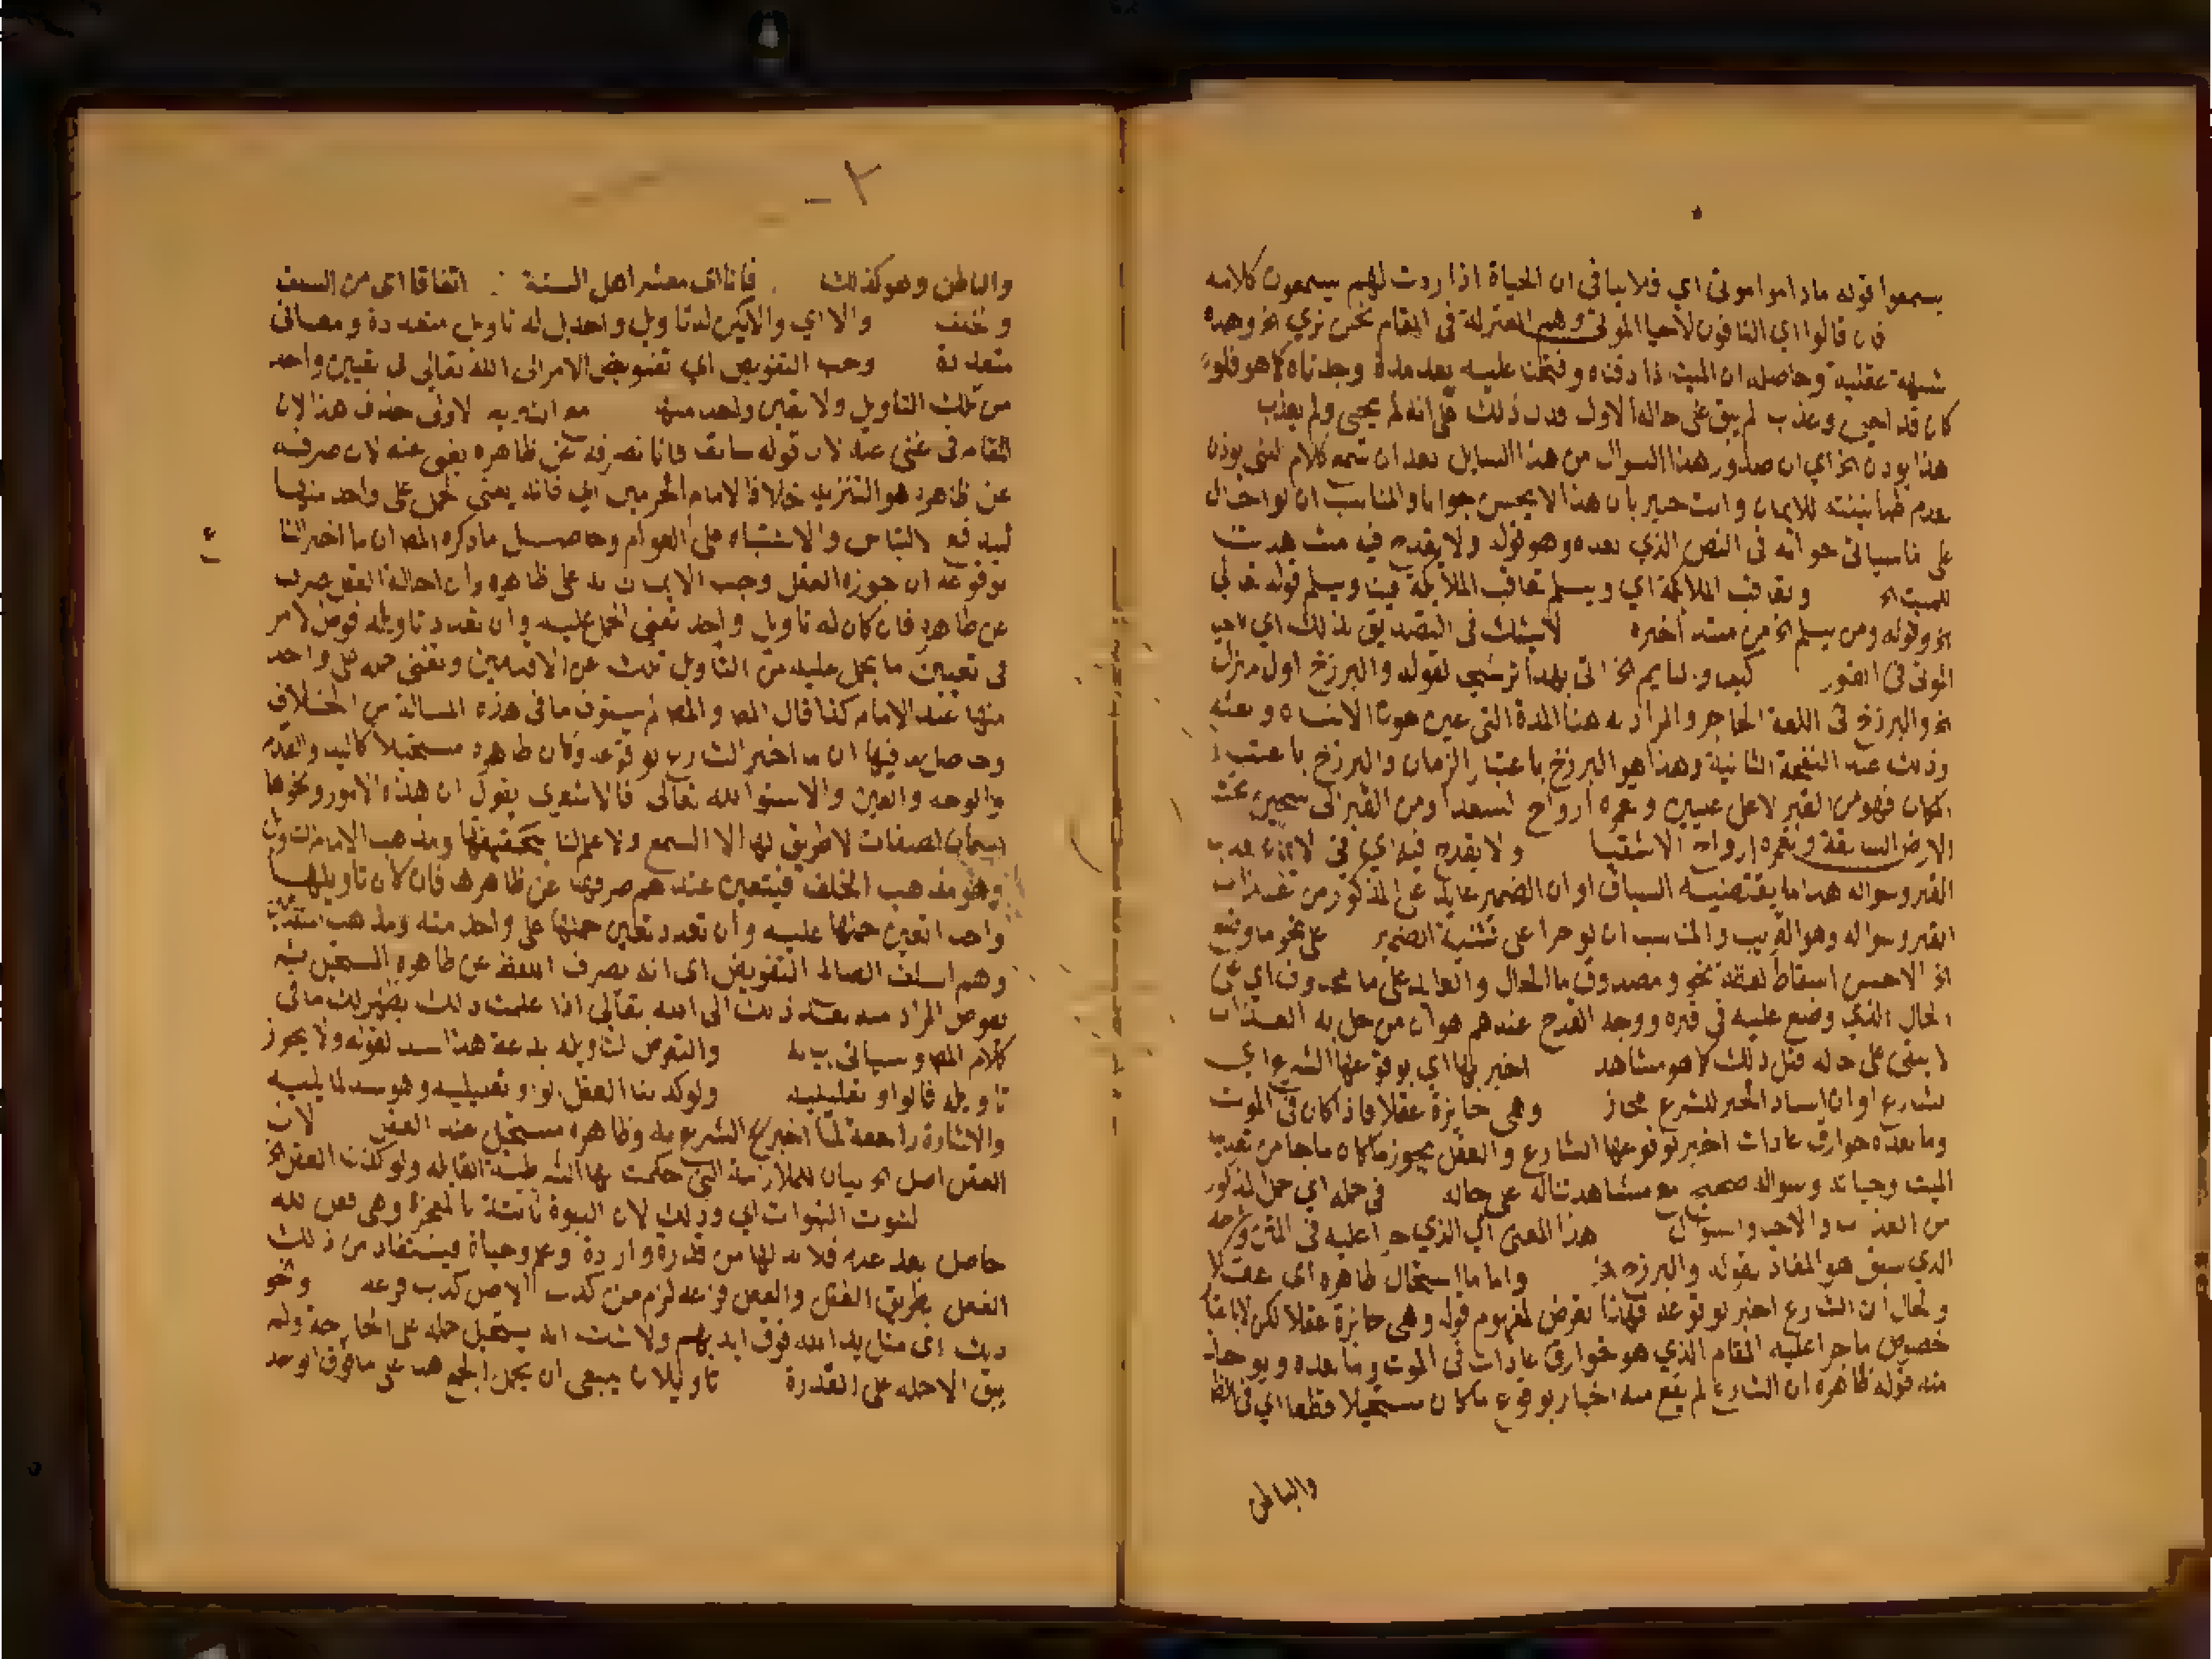 يسمعوا قوله ما داموا موتى اي فلا ينافى ان الحياة اذا ردت لهم يسمعون كلامه
فان قالوا اي النافون لاحيا الموتى وهم المعتزلة فى المقام نحن نري الخ وهده
شبهة عقلية وحاصله ان الميت اذا دفناه وفتحنا عليه بعد مدة وجدناه كما هو فلو
كان قد احيى وعذب لم يبق على حاله الاول فدل ذلك على انه لم يحيى ولم يعذب
هذا يوذن الخ اي ان صدور هذا السوال من هذا السايل بعد ان تتمه كلام النبى يوذن
بعدم طمانينته للايمان وانت خبير بان هذا لا يحسن جوابا والمناسب ان لو احال
على ما سياتى جوابه فى النص الذي بعده وهو قوله ولا يقدح فيه مشاهدتنا
للميت الخ وتعاقب الملايكة اي ويسلم تعاقب الملايكة فينا ويسلم قوله تعالى
الخ وقوله ومن يسلم الخ من مبتدا خبره لا يشك فى التصديق بذلك اي
الموتى فى القبور الخ اتى بهذا توشيحا لقوله والبرزخ اول منزل
الخ والبرزخ فى اللغة الحاجز والمراد به هنا المدة التى بين موت الانسان وبعثه
وذلك عند النفخة الثانية وهذا هو البرزخ باعتبار الزمان والبرزخ باعتبار
المكان فهو من القبر لاعلى عليين وتعمره ارواح السعدا ومن القبر الى سجين تحت
الارض السابعة وتعمره ارواح الاشقيا ولا يقدح فيه اي فى
القبر وسواله هدا ما يقتضيه السياق او ان الضمير عايد على المذكور من عذاب
القبر وسواله وهو القريب والمناسب ان لو جرا على تثنية الضمير على نحو ما وضع
الخ الاحسن اسقاط لفظة نحو ومصدوق ما الحال والعايد على ما محدوف اي على
الحال الذي وضع عليه فى قبره ووجه القدح عندهم هو ان من حل به العذاب
لا يبقى على حاله قبل ذلك كما هو مشاهد اخبر بها اي بوقوعها الشرع اي
الشارع او ان اسناد الخبر للشرع مجاز وهي جايزة عقلا فاذا كان فى الموت
وما بعده خوارق عادات اخبر بوقوعها الشارع والعقل يجوزها كان ما جا من تعذيب
الميت وحياته وسواله صحيح مع مشاهدتنا له على حاله فى حمله اي حمل المذكور
من العذاب والاحيا والسوال هذا المعنى اي الذي جرا عليه فى المتن
الدي سبق هو المفاد بقوله والبرزخ الخ واما ما استحال ظاهره اي عقلا
والحال ان الشارع اخبر بوقوعه فهذا تعرض لمفهوم قوله وهى جايزة عقلا لكن لا باعتبار
خصوص ما جرا عليه المقام الذي هو خوارق عادات فى الموت وما بعده ويوخذ
منه قوله ظاهره ان الشارع لم يقع منه اخبار بوقوع ما كان مستحيلا قطعا اي فى الظاهر
والباطن
٢
والباطن وهو كذلك فانا اي معشر اهل السنة اتفاقا اي من السلف
والخلف والا اي والا يكن له تاويل واحد بل له تاويل متعددة ومعانى
متعددة وجب التفويض اي تفويض الامر الى الله تعالى فى تعيين واحد
من تلك التاويل ولا يتعين واحد منها مع التنزيه الاولى حذف هذا لان
المقام فى غنى عنه لان قوله سابقا فانا نصرفه عن ظاهره يغنى عنه لان صرفه
عن ظاهره هو التنزيه خلافا لامام الحرمين اي فانه يعنى الحمل على واحد منها
ليدفع الالتباس والاشتباه على العوام وحاصل ما ذكره المص ان ما اخبر لنا
بوقوعه ان جوزه العقل وجب الايمان به على ظاهره وان احاله العقل صرف
عن ظاهره فان كان له تاويل واحد تعين الحمل عليه وان تعدد تاويله فوض الامر
فى تعيين ما يحمل عليه من التاويل لله عن الاقدمين وتعين حمله على واحد
منها عند الامام كذا قال المص والمص لم يستوف ما فى هذه المسالة من الخلاف
وحاصله فيها ان ما اخبر الشارع بوقوعه وكان ظاهره مستحيلا كاليد والقدم
والوجه والعين والاستوا لله تعالى فالاشعري يقول ان هذه الامور ونحوها
اسما لصفات لا طريق لها الا السمع ولا علم لنا بحقيقتها ومذهب الامام
وهو مذهب الخلف فيتعين عندهم صرفها عن ظاهرها فان كان تاويلها
واحدا تعين حملها عليه وان تعدد تعين حملها على واحد منه ومذهب
وهم السلف الصالح التفويض اي انه يصرف اللفظ عن ظاهره المستحيل ثم
يفوض المراد منه بعد ذلك الى الله تعالى اذا علمت ذلك يظهر لك ما فى
كلام المص وسياتى بيانه والتعرض لتاويله بدعة هذا سند لقوله ولا يجوز
تاويله قالوا وتعليليه ولو كذبنا العقل الواو تعليليه وهو سند لما يليه
والاشارة راجعة لما اخبر الشرع به وظاهره مستحيل عند العقل لان
العقل اصل الخ بيان للملازمة التى حكمت بها الشرطية القايلة ولو كذب العقل الخ
لثبوت النبوات اي وذلك لان النبوة ثابتة بالمعجزة وهى فعل لله
حاصل بعد عدم فلا بد لها من قدرة وارادة وعلم وحياة فيستفاد من ذلك
الفعل بطريق العقل والعقل فرعه لزم من كذب الاصل كدب فرعه ونحو
ذلك اى مثل يد الله فوق ايديهم ولا شك انه يستحيل حمله على الجارحة ولم
يبق الا حمله على القدرة تاويلان ينبغى ان يحمل الجمع هنا على ما فوق الواحد